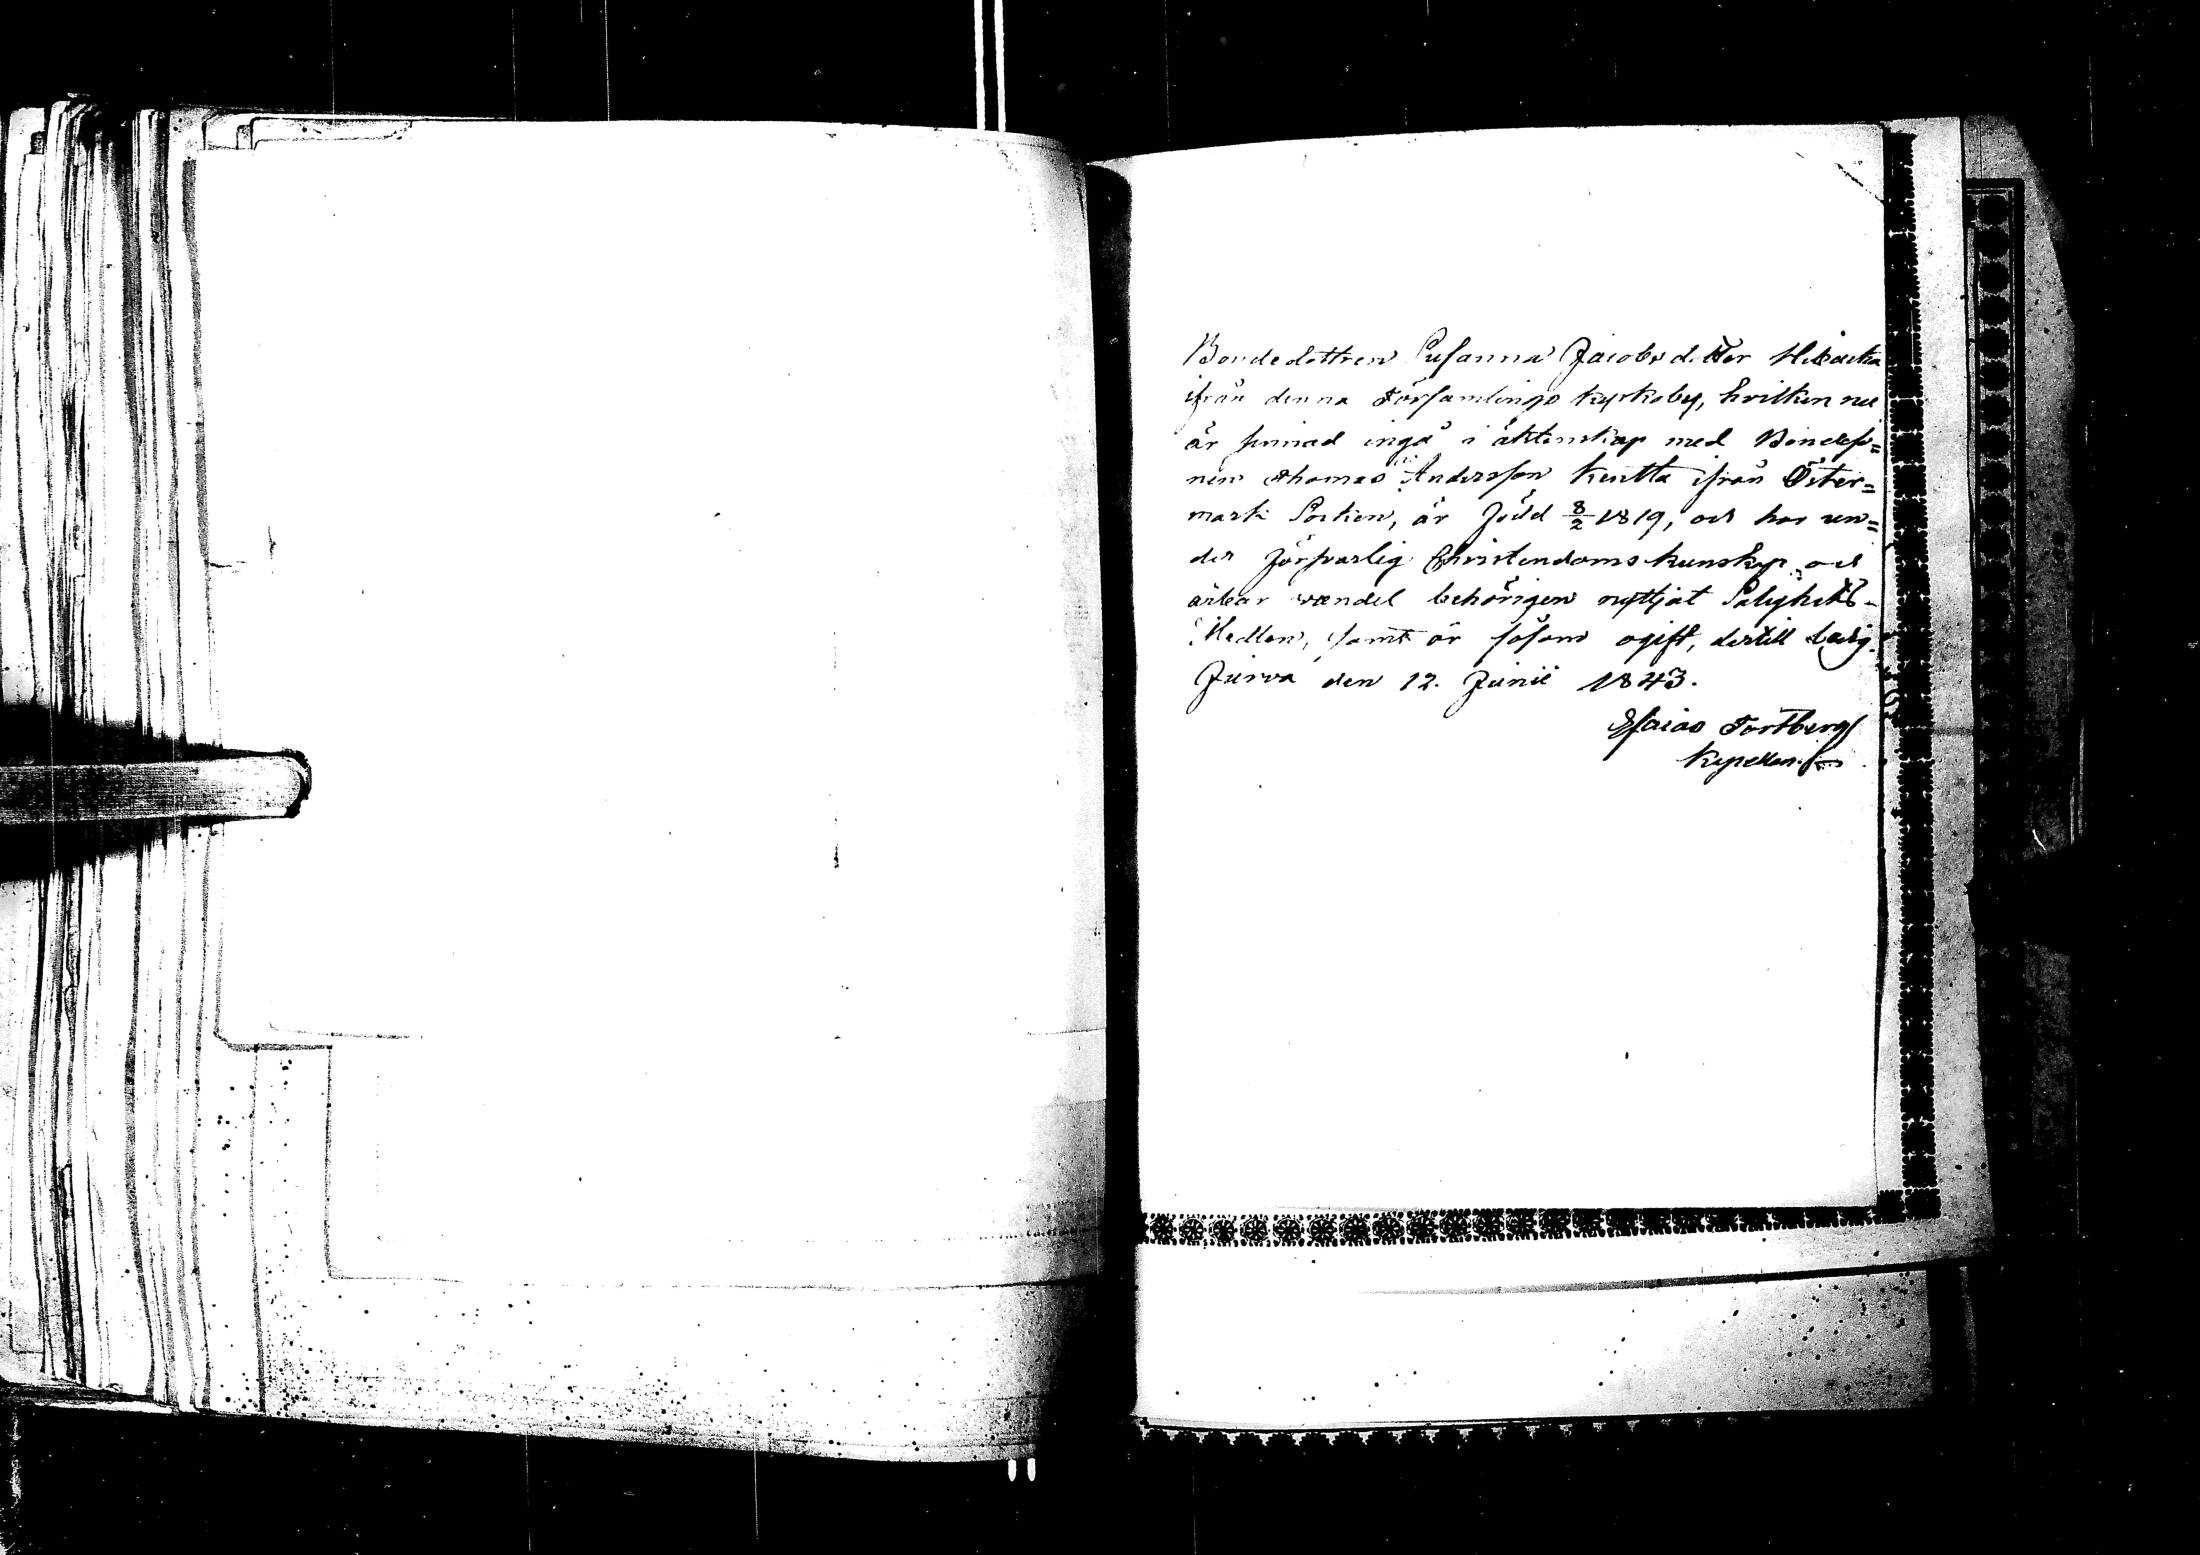 Bondedottren Susanna Jacobsdotter
ifrån denna Församlings kyrkoby, hvilken nu
är sinnad ingå i äktenskap med Bondeso=
nen Thomas Andersson Kentta ifrån Öster=
mark Socken, är född 8/2 1819, och har un=
der försvarlig Christendoms kunskap och
ärbar vandel behörigen nyttjat Salighets-
Medlen, samt är såsom ogift, dertill ledig.
Jurva den 12. Junii 1843.
Esaias Fortberg